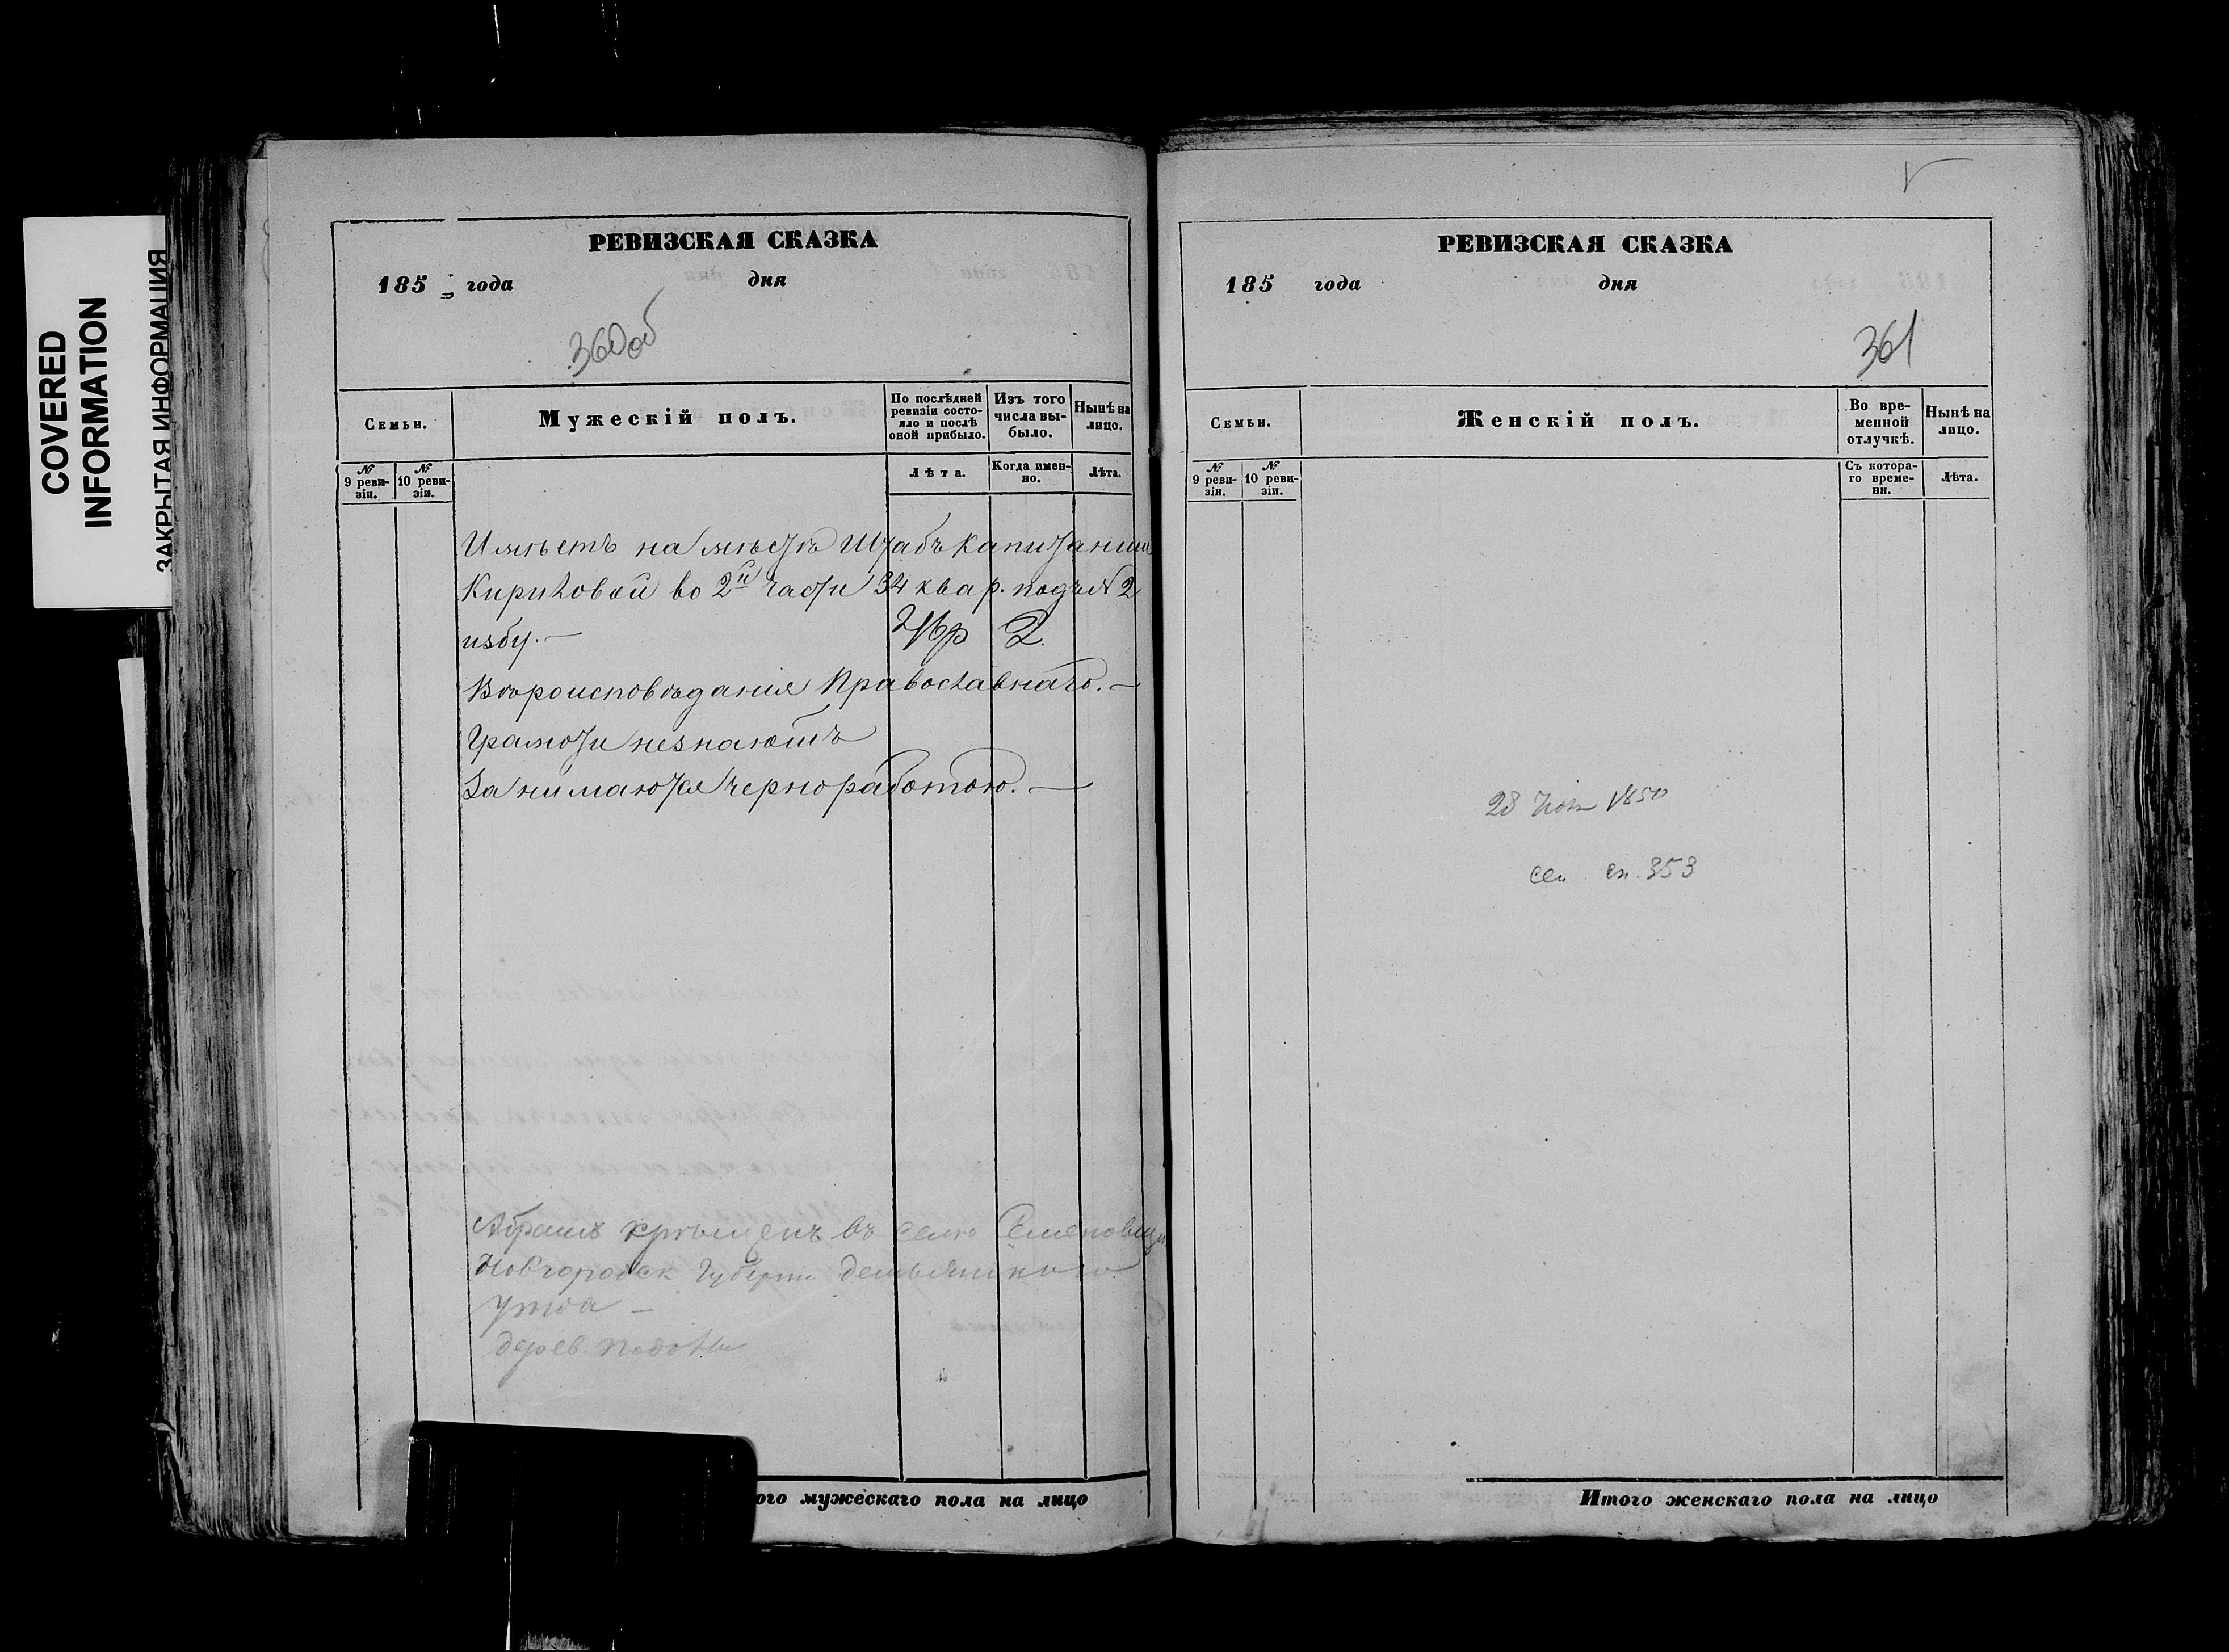 COVERED
INFORMATION
ЗАКРЫТАЯ ИНФОРМАЦИЯ
РЕВИЗСКАЯ СКАЗКА
185 года дня
360об
Семьи.
Мужескій полъ.
По послѣдней ревизіи состояло и послѣ оной прибыло.
Изъ того числа выбыло.
Нынѣ на лицо.
№ 9 ревизіи.
№ 10 ревизіи.
Лѣта.
Когда именно.
Лѣта.
Имѣетъ на мѣстѣ Штабъ Капитанши
Кириловой во 2й части 34 квар. подъ № 2
избу.—
2
Вѣроисповѣданія Православнаго.—
Грамоти незнаютъ
Занимаются чернороботою.—
Абрамъ крѣщенъ въ селѣ
Новгородск Губерни
Уѣзда —
дерев.
ого мужескаго пола на лицо
РЕВИЗСКАЯ СКАЗКА
185 года дня
361
Семьи.
Женскій полъ.
Во временной отлучкѣ.
Нынѣ на лицо.
№ 9 ревизіи.
№ 10 ревизіи.
Съ котораго времени.
Лѣта.
28 1850
353
Итого женскаго пола на лицо